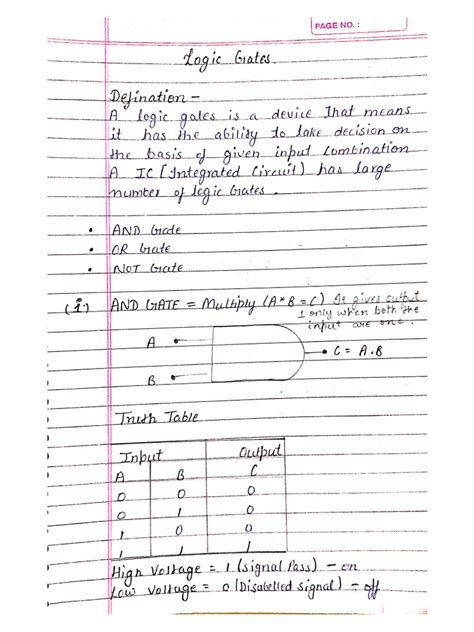 PAGE NO. :
Logic Gates.
Defination -
A logic gates is a device That means
it has the ability to take decision on
the basis of given input Combination
A IC [Integrated Circuit) has large
number of logic Gates.
• AND Gate
• OR Gate
• NOT Gate
(i) AND GATE = Multiply (A*B = C) It gives output
1 only when both the
input are one.
A
C = A.B
B
Truth Table
Input Output
A B C
0 0 0
0 1 0
1 0 0
1 1 1
High Voltage = 1 (Signal Pass) - on
Low Voltage = 0 (Disabelled Signal) - off